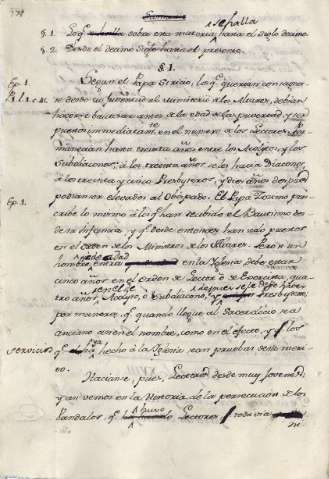 Sumario
§ 1. Lo q.e se halla sobre esta materia hasta el siglo decimo
§ 2. Desde el decimo siglo hasta el presente.
§ 1
Segun el Papa Siricio, los q.e querian consagrarse
desde su juventud al ministerio de los Altares, debian
Ep. 1.
hacerse bautizar antes de la edad de la pubertad y ser
puestos inmediatam. en el numero de los Lectores. Permanecian
hasta treinta años entre los Acolytos, y los
Subdiaconos; a los treinta años los hacia Diaconos,
a los treinta y cinco Presbyteros, y diez años despues
podian ser elevados al Obispado. El Papa Zosimo prescribe
Ep. 1.
lo mismo a los q.e han recibido el Bautismo desde
su Infancia, y q.e desde entonces han sido puestos
en el orden de los Ministros de los Altares. Pero si un
hombre de edad entra en la Iglesia debe estar
cinco años en el orden de Lector o de Exorcista, quatro
años Acolyto, o Subdiacono, y despues
por menores, q.e quando llegue al Sacerdocio sea
anciano así en el nombre, como en el efecto, y q.e los
servicios q.e haya hecho a la Iglesia sean pruebas de su merito.
Hacianse, pues, Lectores desde muy jovenes,
y así vemos en la Historia de la persecucion de los
Vandalos, q.e hubo Lectores todavia